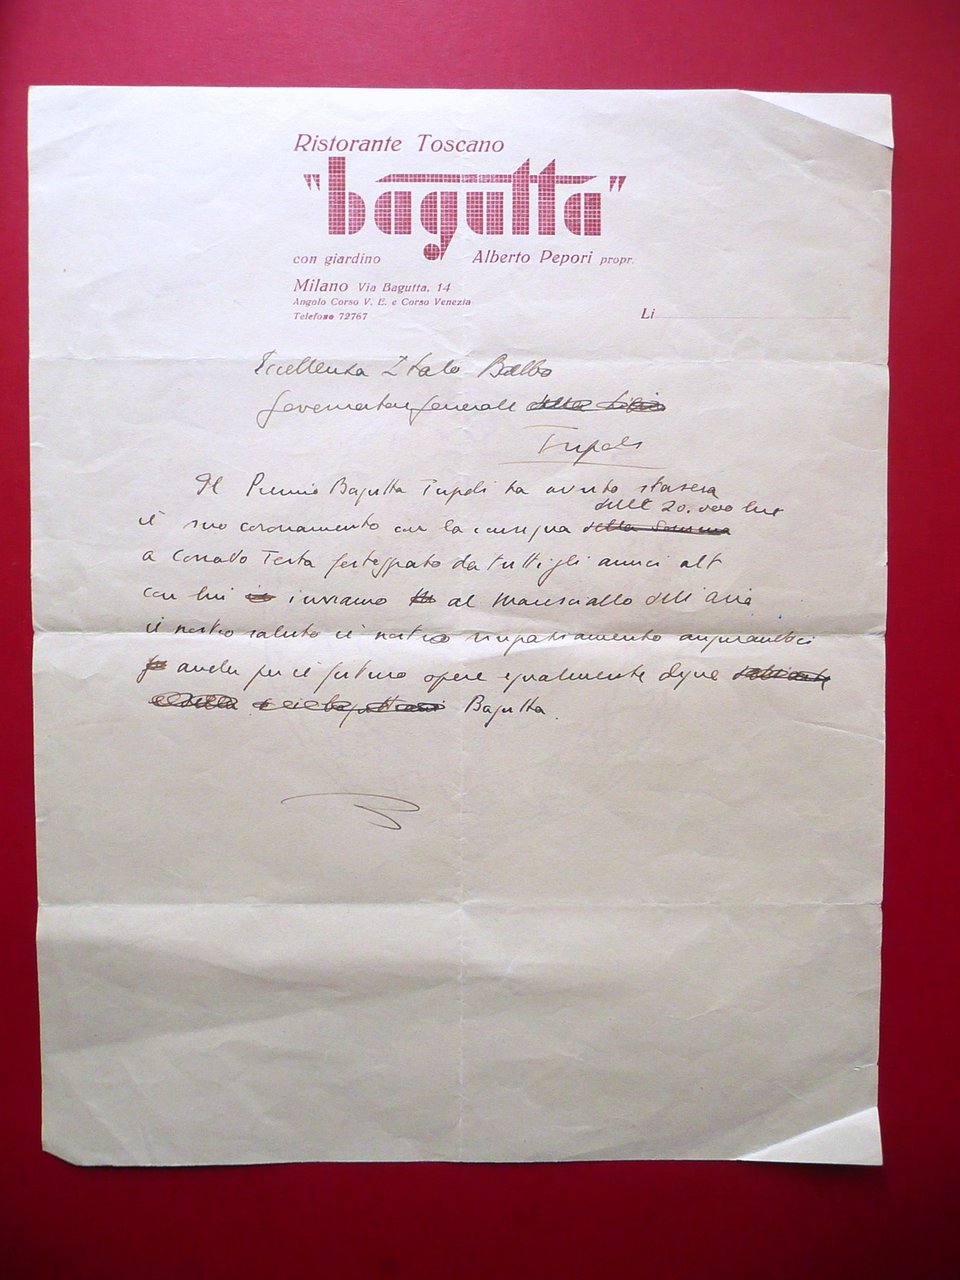 Ristorante Toscano
"bagutta"
con giardino Alberto Pepori propr.
Milano Via Bagutta, 14
Angolo Corso V. E. e Corso Venezia
Telefono 72767
Li
Eccellenza Italo Balbo
Governatore Generale della Libia
Tripoli
Il Premio Bagutta Tripoli ha avuto stasera
delle 20.000 lire
il suo coronamento con la consegna della somma
a Corrado Testa festeggiato da tutti gli amici
con lui inviamo al Maresciallo dell'aria
il nostro saluto il nostro ringraziamento augurandoci
anche per il futuro opere egualmente degne
Bagutta.